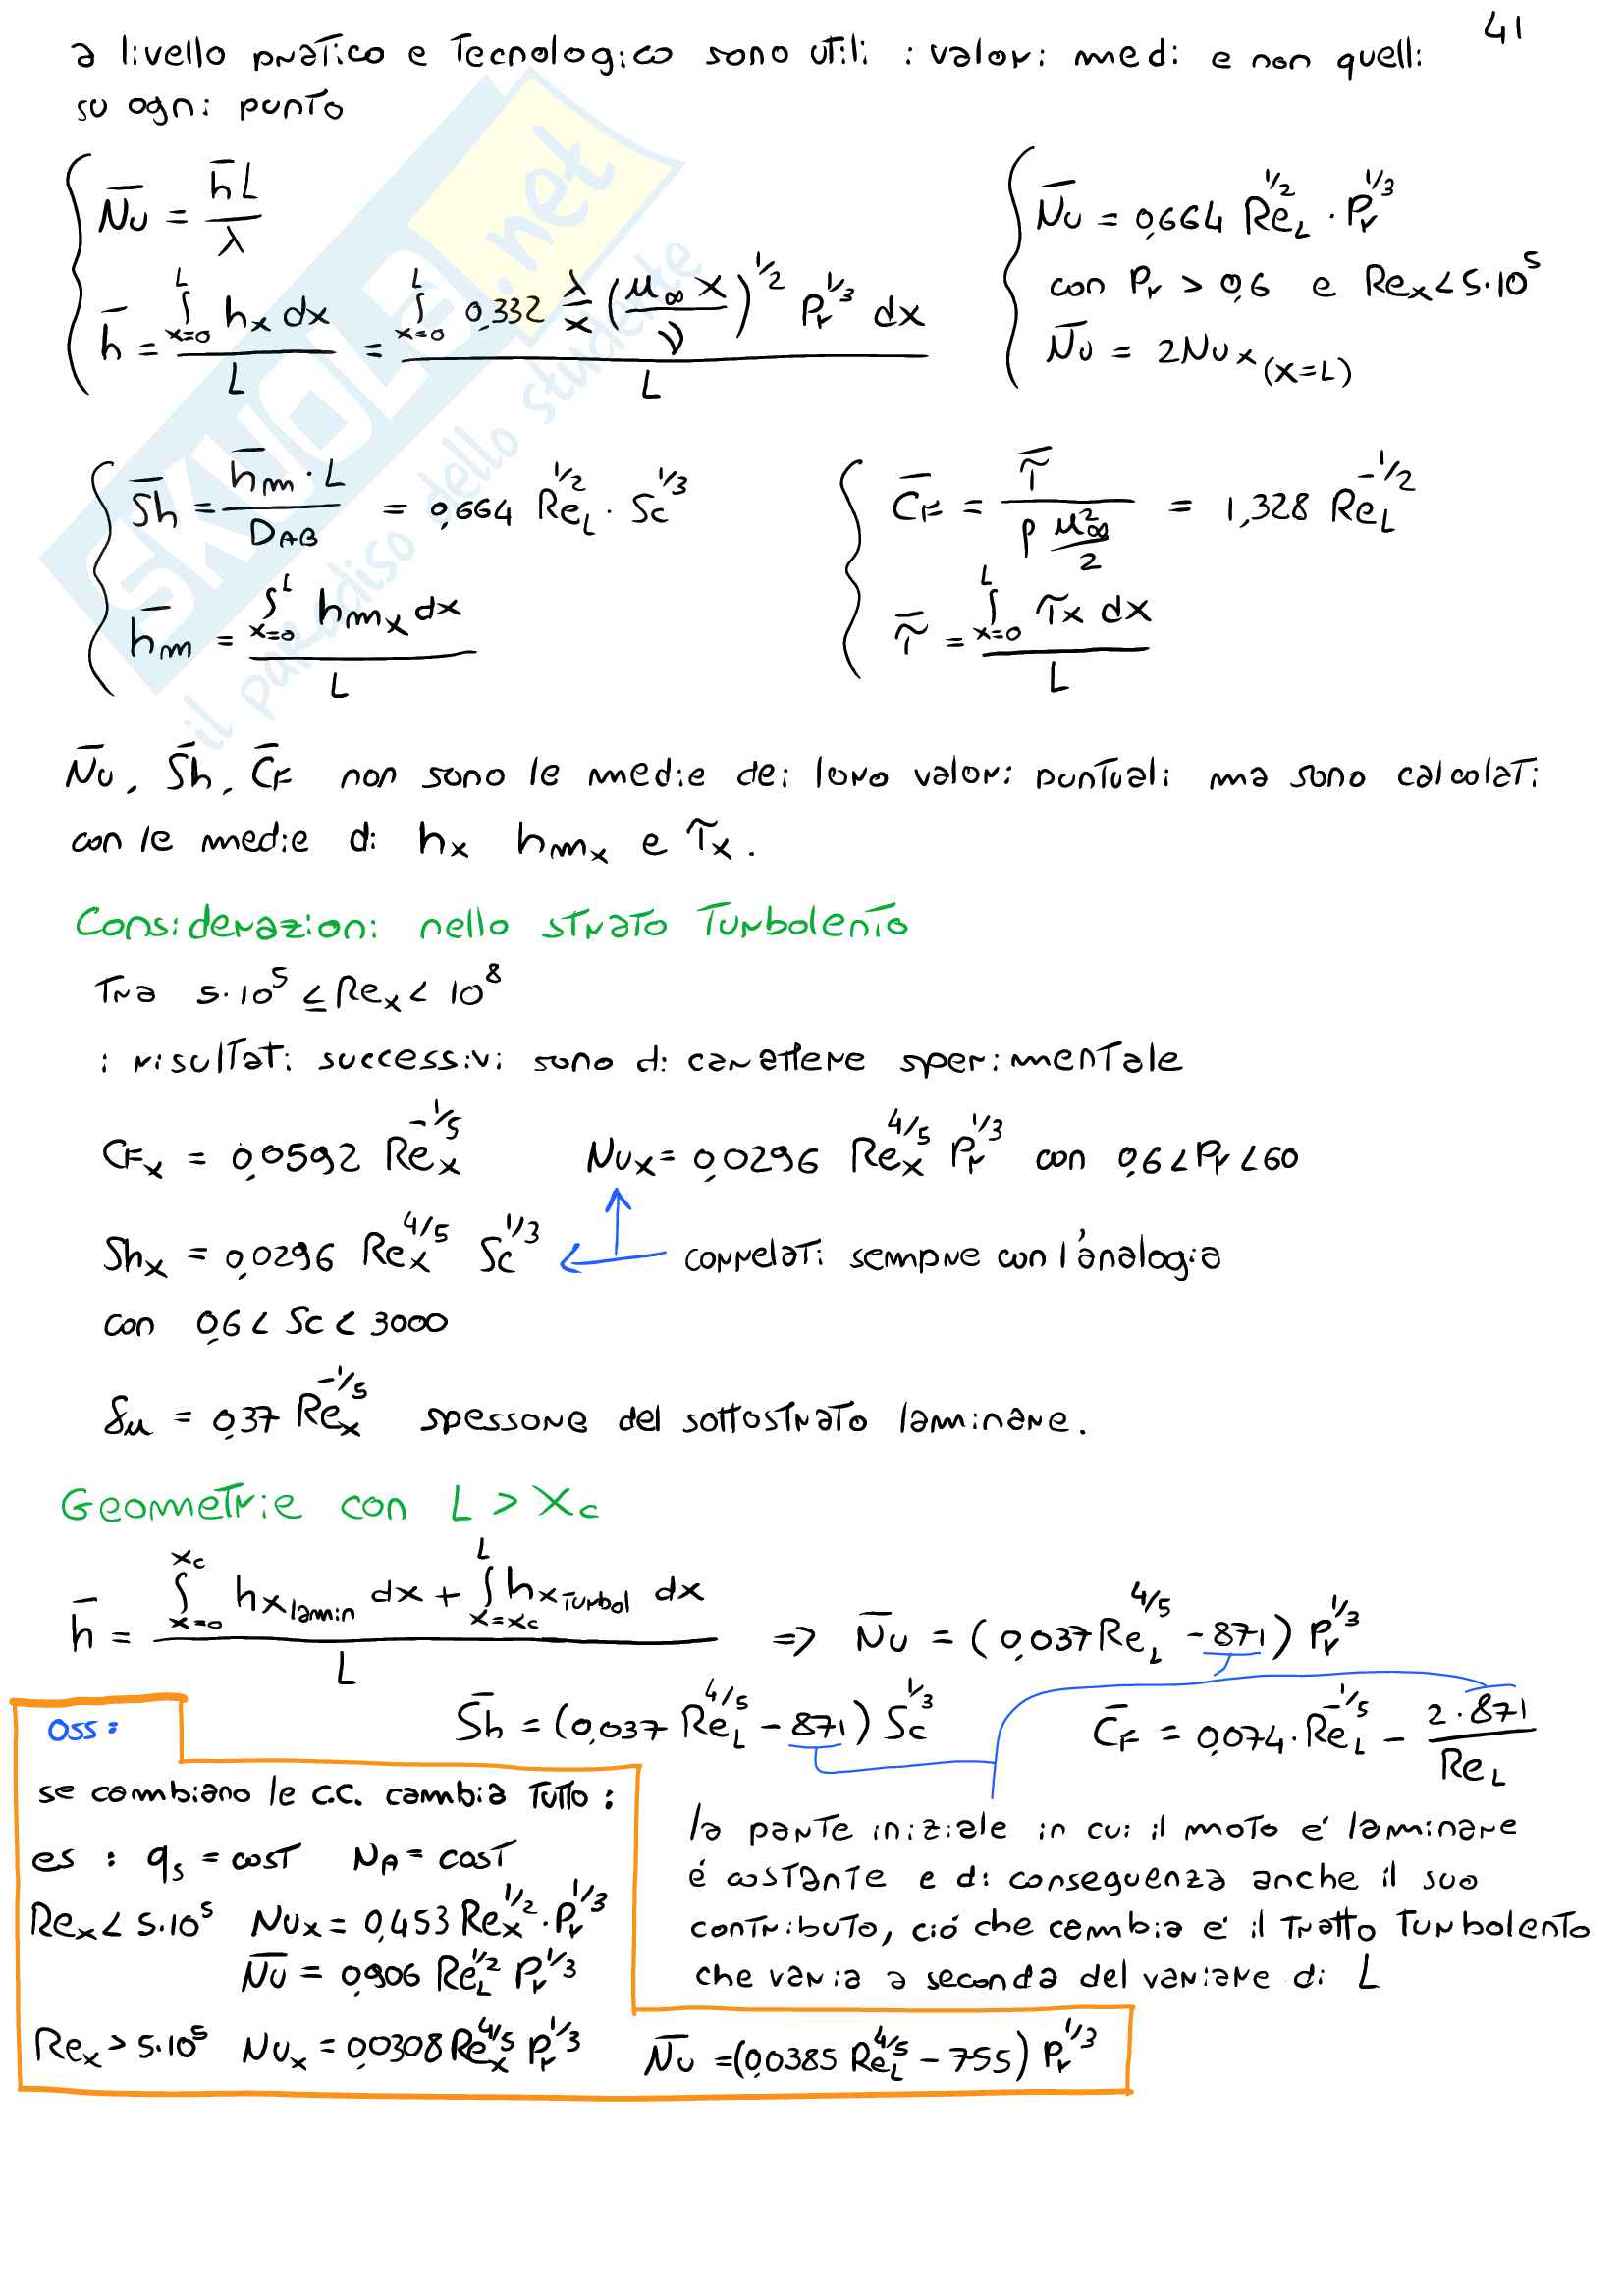 41
a livello pratico e tecnologico sono utili i valori medi e non quelli
su ogni punto
N̅u = h̅L/λ
h̅ = ∫_{x=0}^{L} hx dx / L = ∫_{x=0}^{L} 0,332 λ/x (u∞ x/ν)^{1/2} Pr^{1/3} dx / L
N̅u = 0,664 Re_L^{1/2} · Pr^{1/3}
con Pr > 0,6 e Rex < 5·10^5
N̅u = 2Nux (x=L)
S̅h = h̅m · L / D_AB = 0,664 Re_L^{1/2} · Sc^{1/3}
h̅m = ∫_{x=0}^{L} hmx dx / L
C̅F = τ̅ / (ρ u∞²/2) = 1,328 Re_L^{-1/2}
τ̅ = ∫_{x=0}^{L} τx dx / L
N̅u, S̅h, C̅F non sono le medie dei loro valori puntuali ma sono calcolati
con le medie di hx hmx e τx.
Considerazioni nello strato turbolento
Tra 5·10^5 ≤ Rex < 10^8
i risultati successivi sono di carattere sperimentale
CFx = 0,0592 Rex^{-1/5} Nux = 0,0296 Rex^{4/5} Pr^{1/3} con 0,6 < Pr < 60
Shx = 0,0296 Rex^{4/5} Sc^{1/3} correlati sempre con l'analogia
con 0,6 < Sc < 3000
δu = 0,37 Rex^{-1/5} spessore del sottostrato laminare.
Geometrie con L > Xc
h̅ = (∫_{x=0}^{xc} hx lamin dx + ∫_{x=xc}^{L} hx turbol dx) / L => N̅u = (0,037 Re_L^{4/5} - 871) Pr^{1/3}
S̅h = (0,037 Re_L^{4/5} - 871) Sc^{1/3} C̅F = 0,074 · Re_L^{-1/5} - 2·871/Re_L
oss:
se cambiano le c.c. cambia tutto:
es: qs = cost NA = cost
Rex < 5·10^5 Nux = 0,453 Rex^{1/2} · Pr^{1/3}
N̅u = 0,906 Re_L^{1/2} Pr^{1/3}
Rex > 5·10^5 Nux = 0,0308 Rex^{4/5} Pr^{1/3} N̅u = (0,0385 Re_L^{4/5} - 755) Pr^{1/3}
la parte iniziale in cui il moto é laminare
é costante e di conseguenza anche il suo
contributo, ció che cambia é il tratto turbolento
che varia a seconda del variare di L
SKUOLA.net
il paradiso dello studente